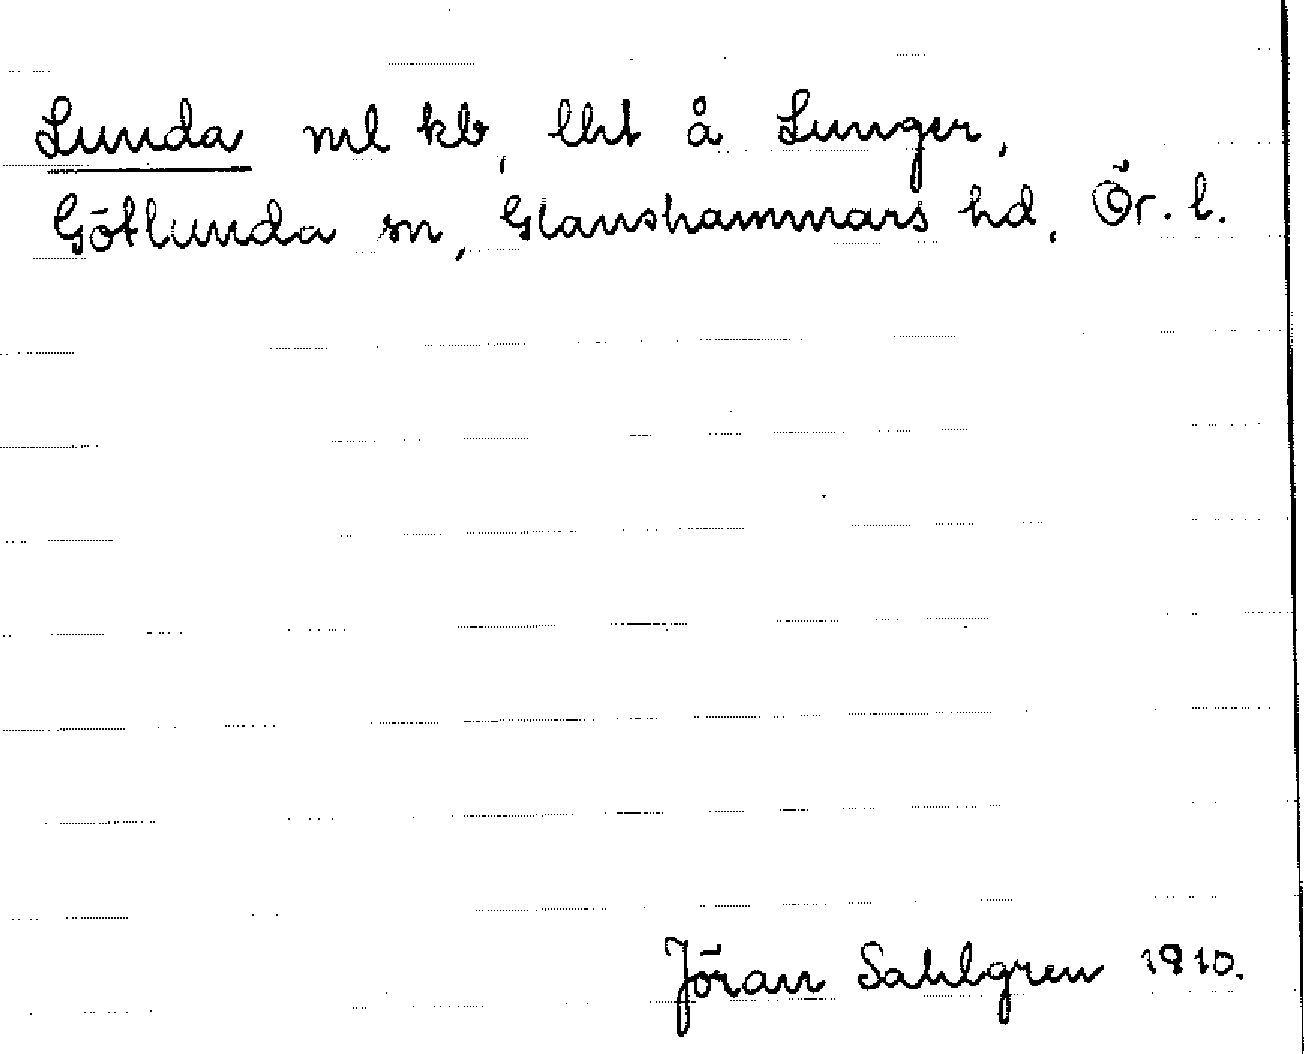 Lunda ml kb, lht å Lunger,
Götlunda sn, Glanshammars hd, Ör. l.
Jöran Sahlgren 1910.